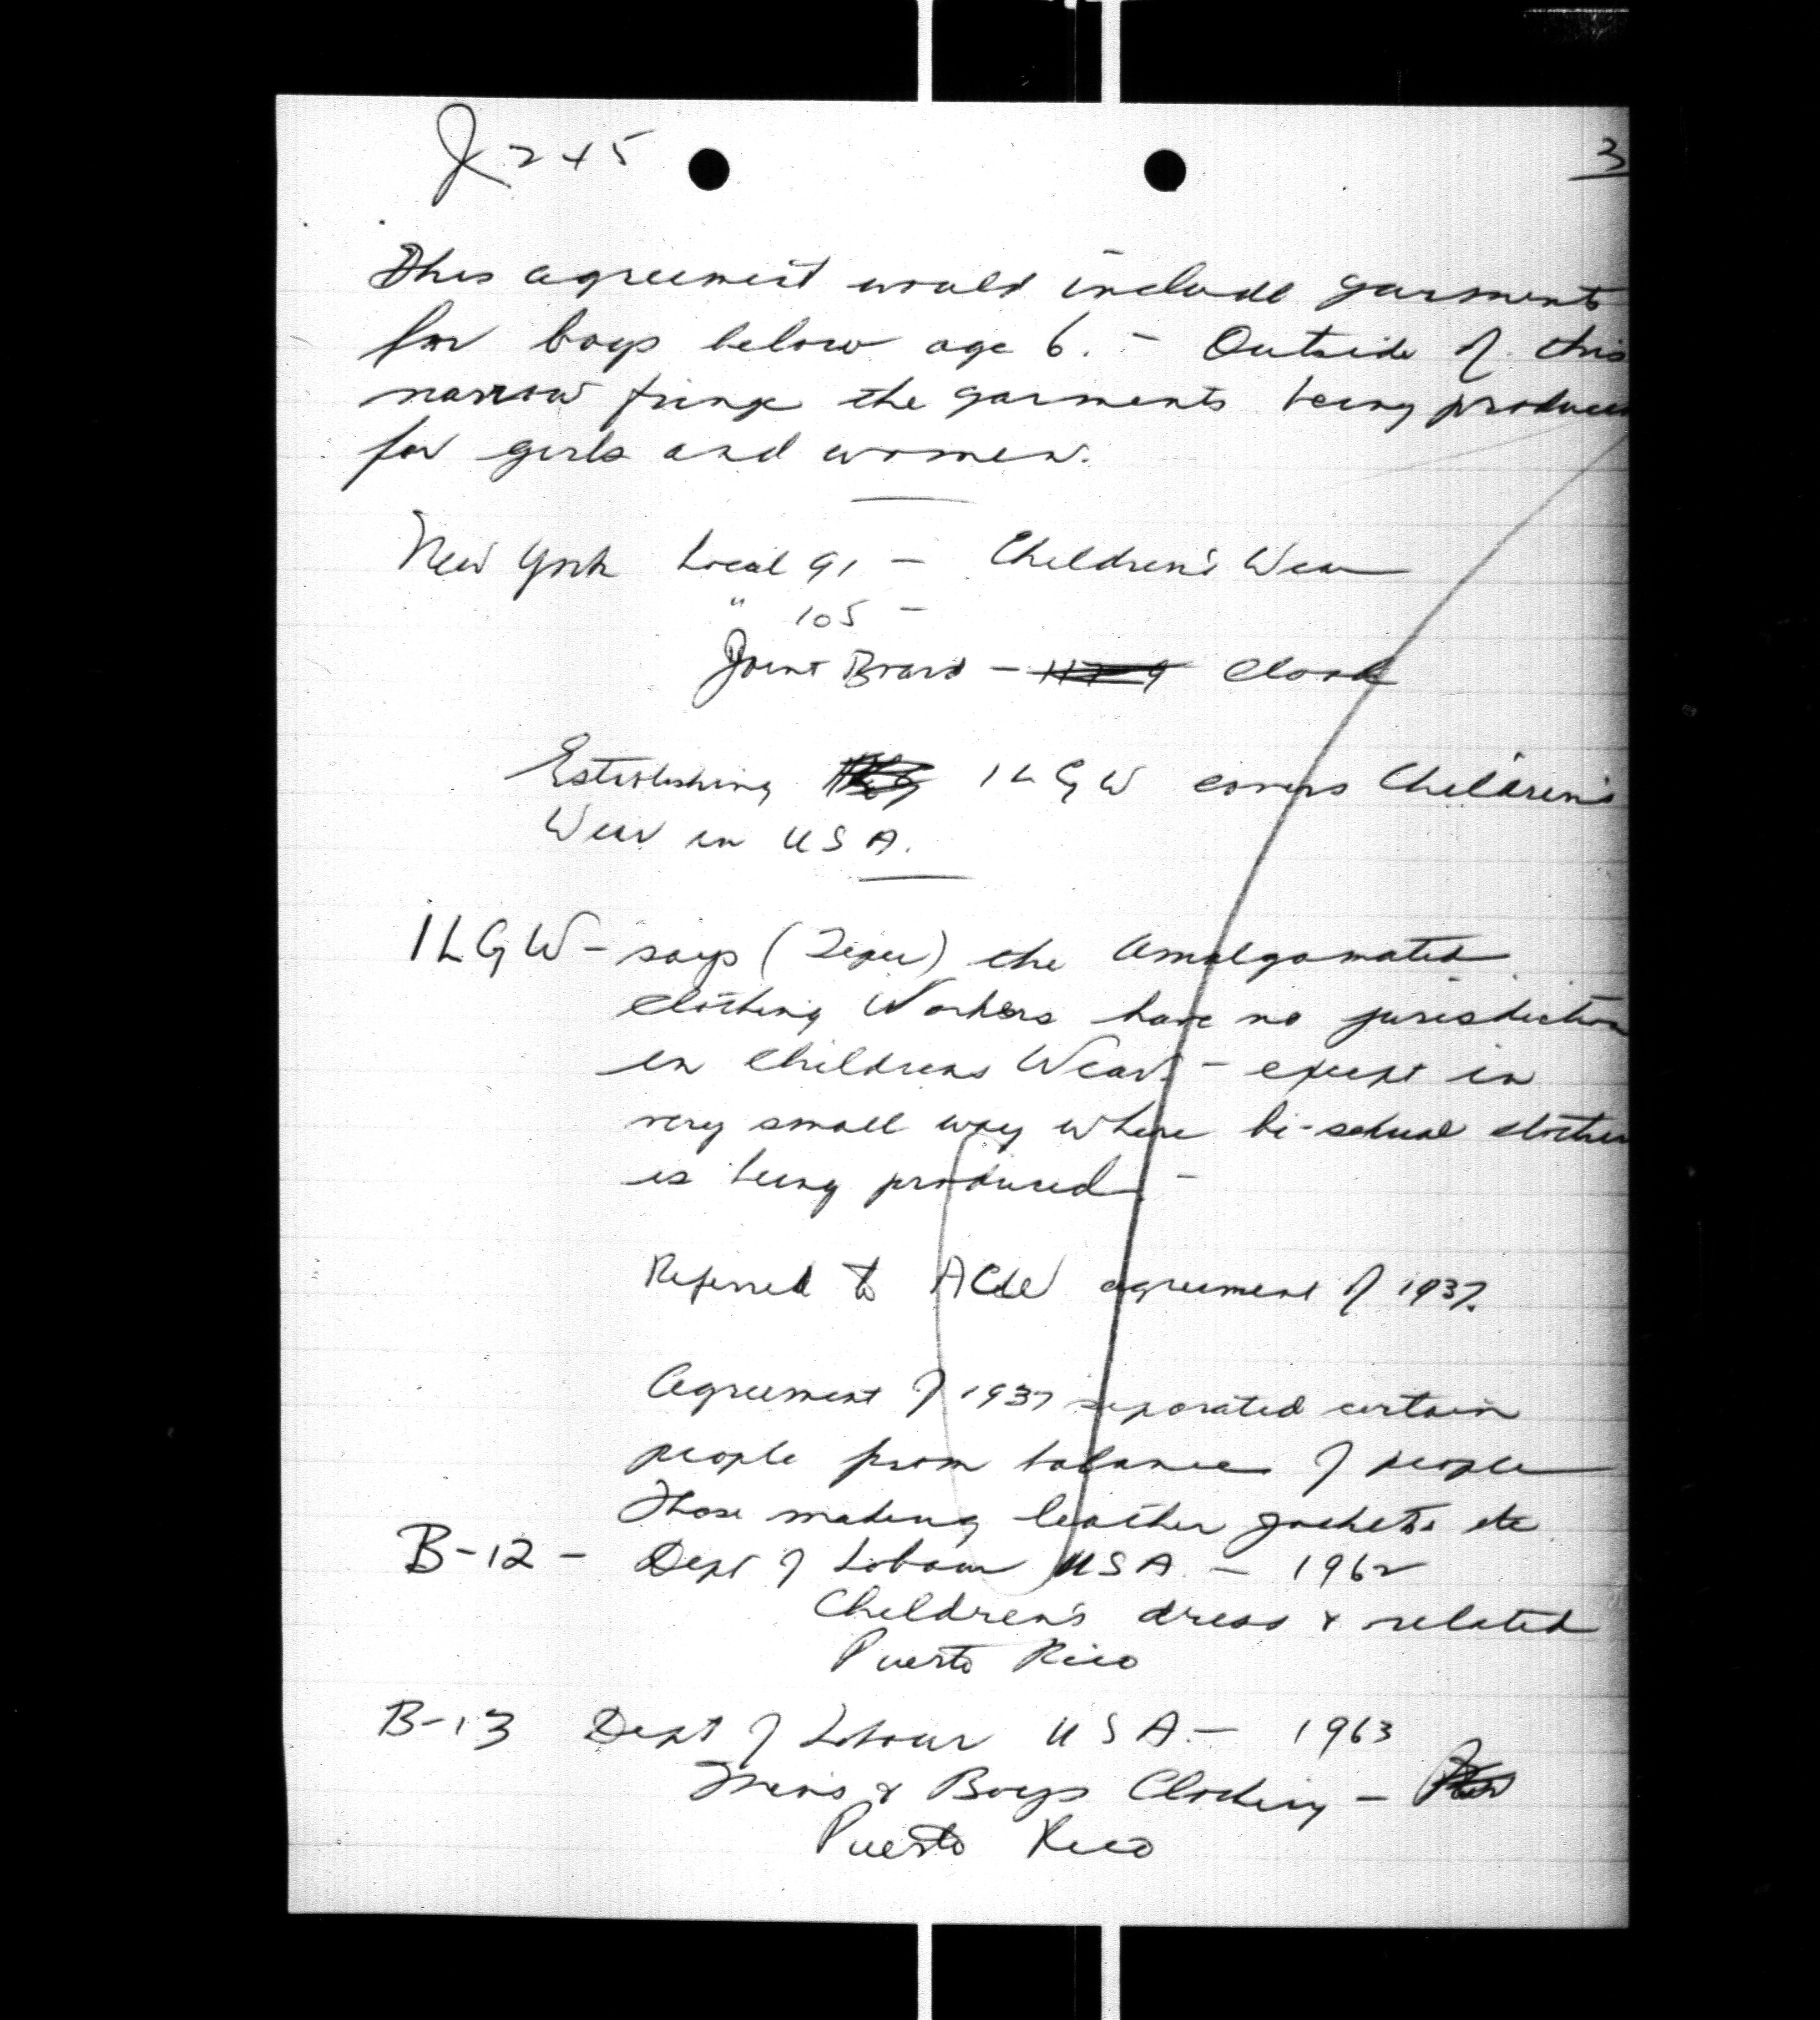 J 245
3
This agreement would include garments
for boys below age 6. - Outside of this
narrow fringe the garments being produced
for girls and women.
New York Local 91 - Children's Wear
" 105 -
Joint Board - Cloak
Establishing ILGW covers Children's
Wear in USA.
ILGW - says ( ) the Amalgamated
Clothing Workers have no jurisdiction
in Childrens Wear. - except in
very small way where bi-sexual clothes
is being produced. -
Referred to ACW agreement of 1937.
Agreement of 1937 separated certain
people from balance of people
Those making leather jackets etc
B-12 - Dept of Labour USA. - 1962
Children's dress & related
Puerto Rico
B-13 Dept of Labour USA. - 1963
Men's & Boys Clothing -
Puerto Rico